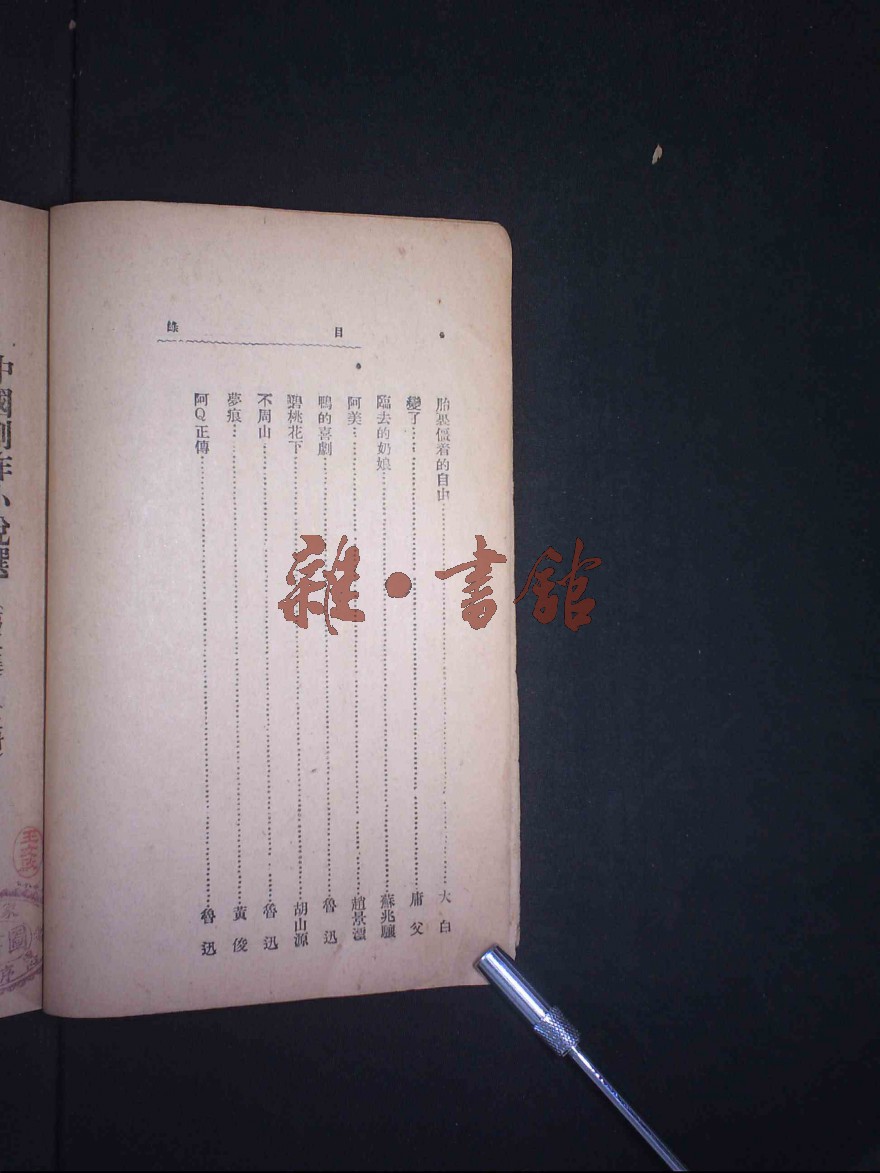 目錄
胎裏偎着的自由 大白
變了 庸父
臨去的奶娘 蘇兆驤
阿美 趙景澐
鴨的喜劇 魯迅
碧桃花下 胡山源
不周山 魯迅
夢痕 黃俊
阿Q正傳 魯迅
中國創作小說選
雜·書館